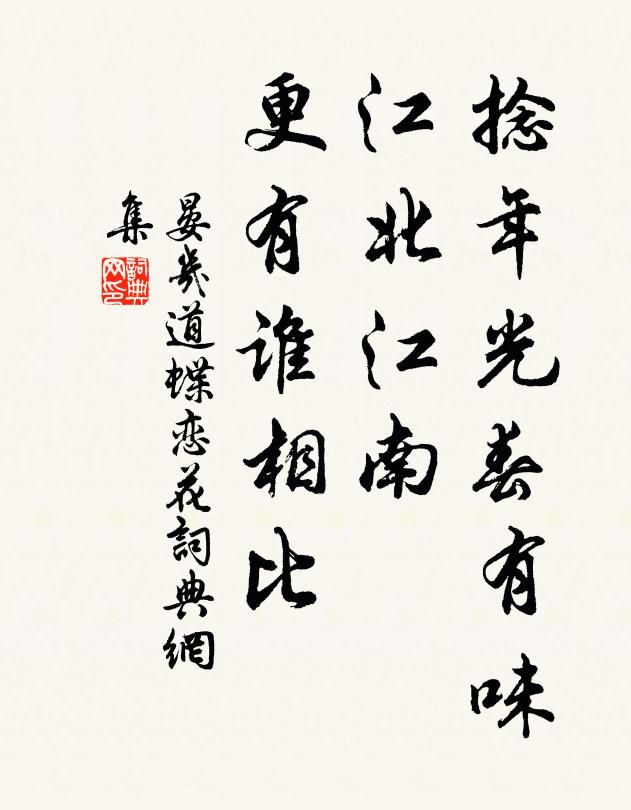 捻年光春有味
江北江南
更有誰相比
晏幾道蝶恋花詞典網
集
詞典
网印